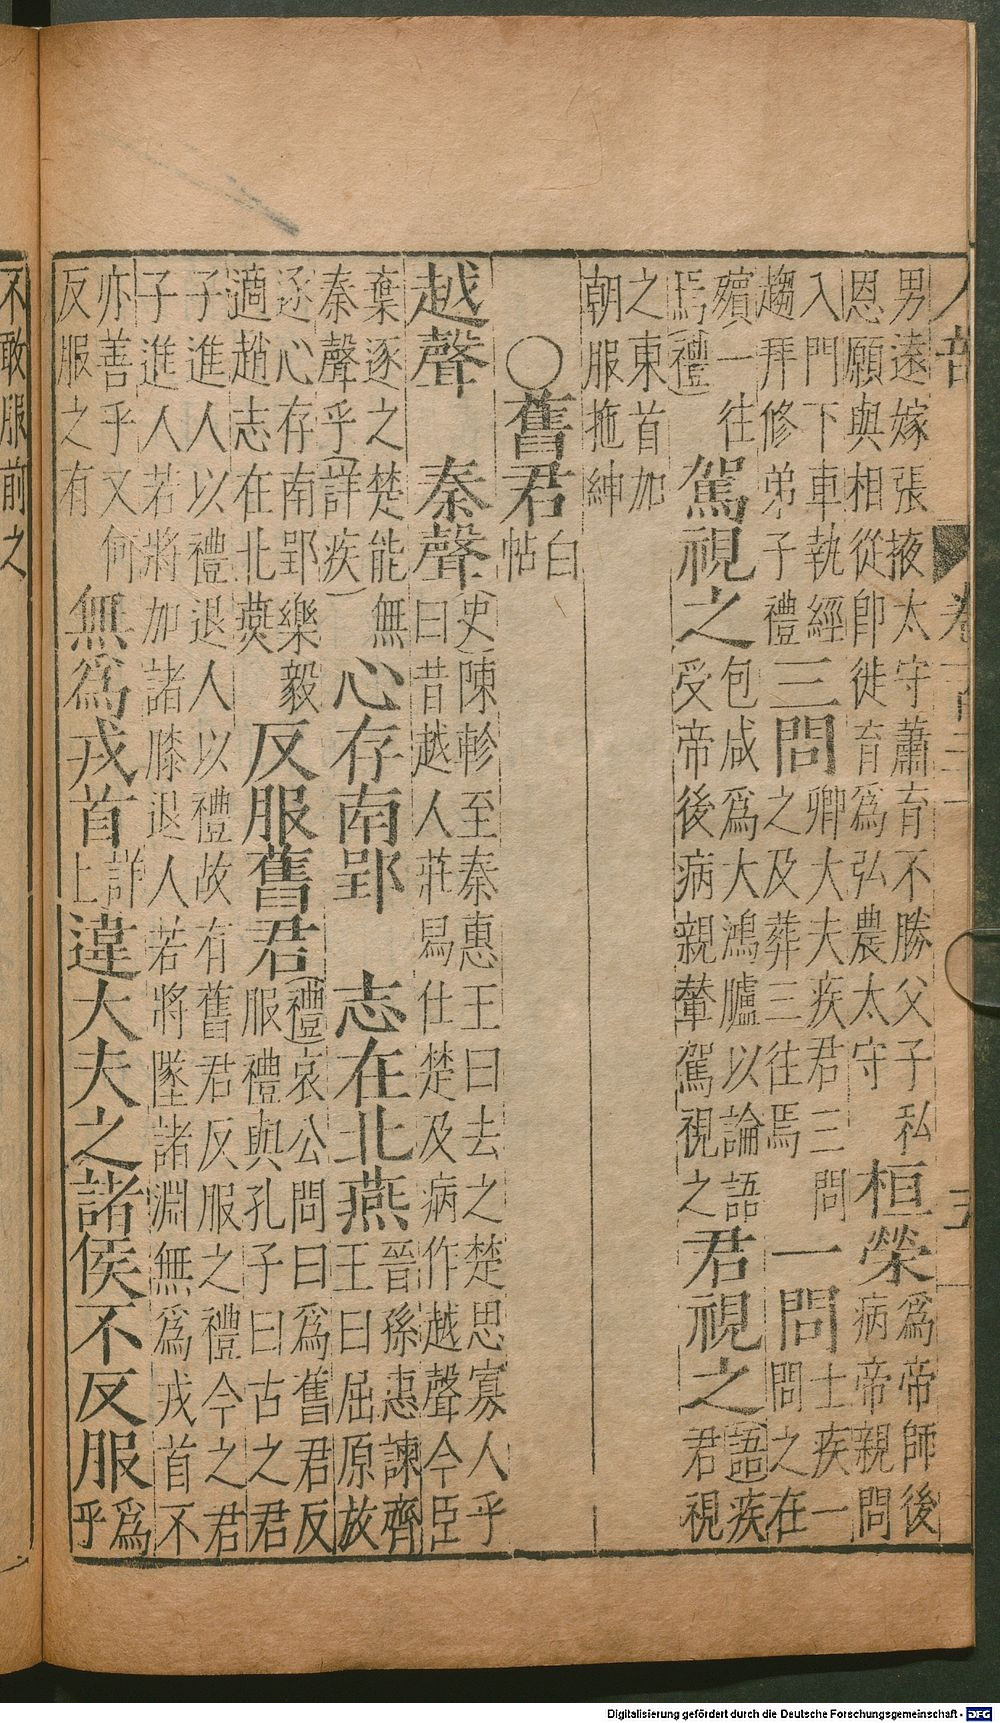 人部
男遠嫁張掖太守蕭育不勝父子私恩願與相從卽徙育爲弘農太守 桓榮 爲帝師後病帝親問
入門下車執經趨拜修弟子禮 三問 卿大夫疾君三問之及葬三往焉 一問 士疾一問之在
殯一往焉(禮) 駕視之 包咸爲大鴻臚以論語受帝後病親輦駕視之 君視之 (語)疾君視
之東首加朝服拖紳
〇舊君 白帖
越聲 秦聲 (史)陳軫至秦惠王曰去之楚思寡人乎曰昔越人莊舄仕楚及病作越聲今臣
棄逐之楚能無秦聲乎(詳疾) 心存南郢 志在北燕 晉孫惠諫齊王曰屈原放
逐心存南郢樂毅適趙志在北燕 反服舊君 (禮)哀公問曰爲舊君反服禮與孔子曰古之君
子進人以禮退人以禮故有舊君反服之禮今之君子進人若將加諸膝退人若將墜諸淵無爲戎首不
亦善乎又何反服之有 無爲戎首 詳上 違大夫之諸侯不反服 爲乎
不敢服前之
Digitalisierung gefördert durch die Deutsche Forschungsgemeinschaft - DFG